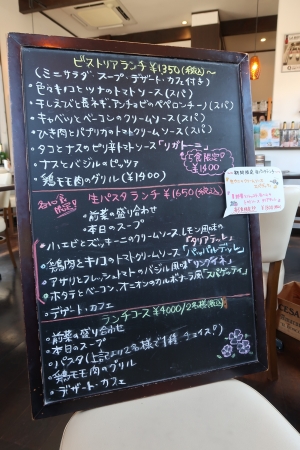 ビストリアランチ ¥1350(税込)〜
(ミニサラダ・スープ・デザート・カフェ付き)
・色々キノコとツナのトマトソース(スパ)
・干しエビと長ネギ、アンチョビのペペロンチーノ(スパ)
・キャベツとベーコンのクリームソース(スパ)
・ひき肉とパプリカのトマトクリームソース(スパ)
・タコとナスのゼッリ辛トマトソース「リガトーニ」
・ナスとバジルのピッツァ
5食限定!!
¥1400
・鶏モモ肉のグリル(¥1900)
生パスタランチ ¥1650(税込)
各10食限定!!
・前菜の盛り合わせ
・本日のスープ
・小エビとズッキーニのクリームソース、レモン風味の"タリアテッレ"
・鶏肉とキノコのトマトクリームソース"パッパルデッレ"
・アサリとフレッシュトマトのバジル風味"リングイネ"
・ホタテとベーコン、オニオンのカルボナーラ風"スパゲッティ"
・デザート・カフェ
ランチコース ¥4000/2名様(税込)
・前菜の盛り合わせ
・本日のスープ
・パスタ(上記より2名様で1種チョイス♪)
・鶏モモ肉のグリル
・デザート・カフェ